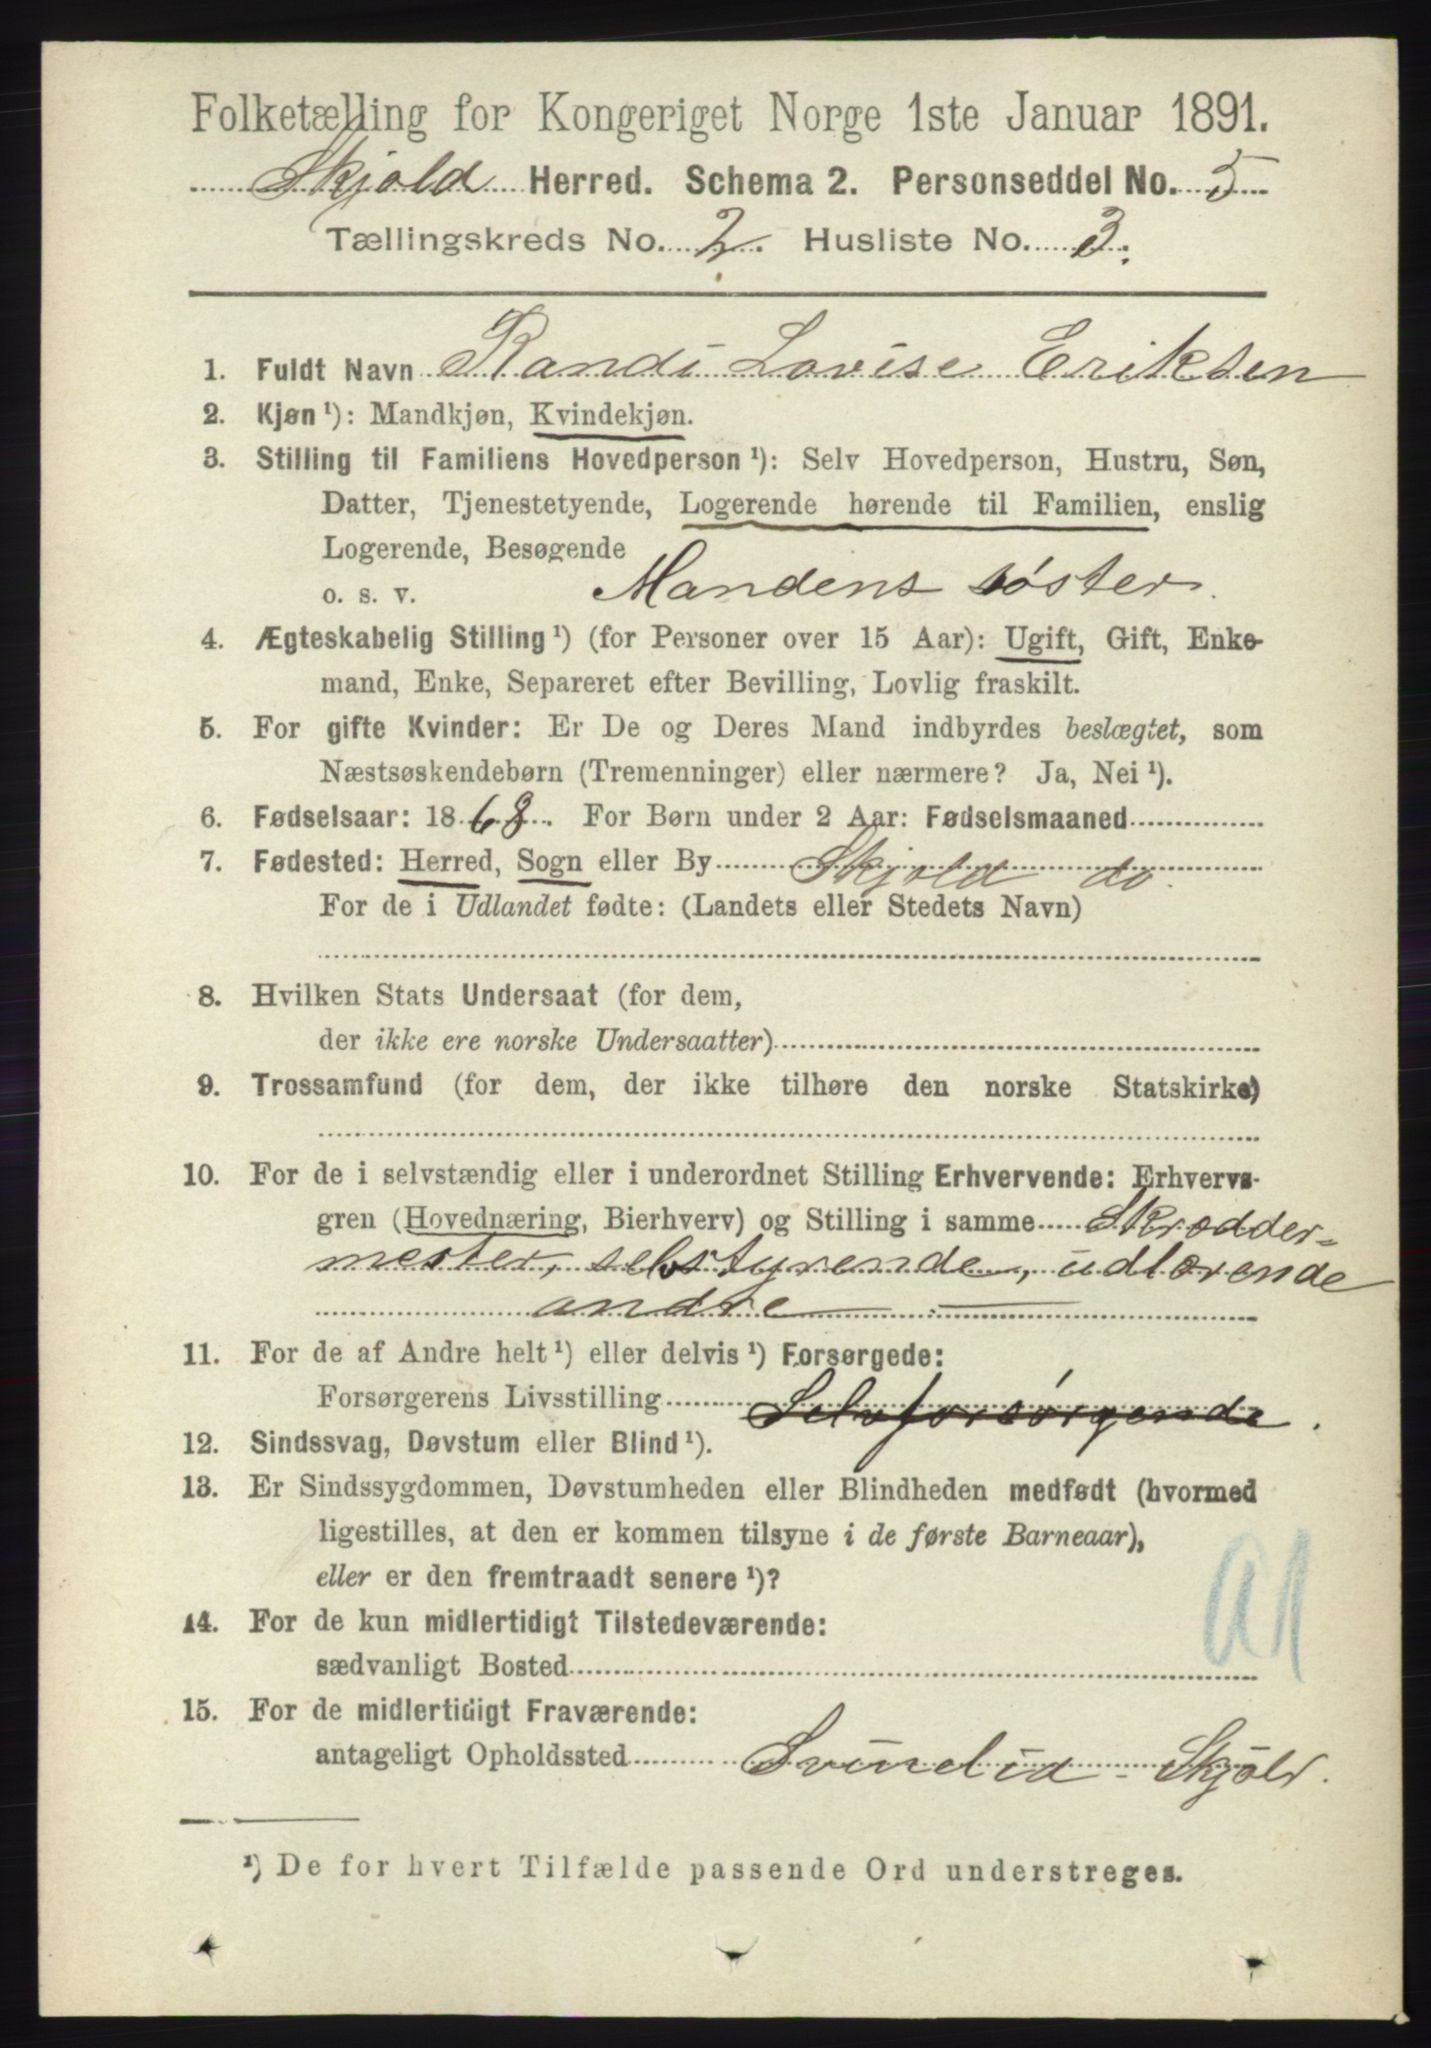 Folketælling for Kongeriget Norge 1ste Januar 1891.
Skjold Herred. Schema 2. Personseddel No. 5
Tællingskreds No. 2. Husliste No. 3.
1. Fuldt Navn Randi Lovise Eriksen
2. Kjøn ¹): Mandkjøn, Kvindekjøn.
3. Stilling til Familiens Hovedperson ¹): Selv Hovedperson, Hustru, Søn,
Datter, Tjenestetyende, Logerende hørende til Familien, enslig
Logerende, Besøgende
o. s. v. Mandens søster.
4. Ægteskabelig Stilling ¹) (for Personer over 15 Aar): Ugift, Gift, Enke-
mand, Enke, Separeret efter Bevilling, Lovlig fraskilt.
5. For gifte Kvinder: Er De og Deres Mand indbyrdes beslægtet, som
Næstsøskendebørn (Tremenninger) eller nærmere? Ja, Nei ¹).
6. Fødselsaar: 1868. For Børn under 2 Aar: Fødselsmaaned
7. Fødested: Herred, Sogn eller By Skjold do.
For de i Udlandet fødte: (Landets eller Stedets Navn)
8. Hvilken Stats Undersaat (for dem,
der ikke ere norske Undersaatter)
9. Trossamfund (for dem, der ikke tilhøre den norske Statskirke)
10. For de i selvstændig eller i underordnet Stilling Erhvervende: Erhvervs-
gren (Hovednæring, Bierhverv) og Stilling i samme Skrædder-
mester, selvstyrende, udlærende
andre
11. For de af Andre helt ¹) eller delvis ¹) Forsørgede:
Forsørgerens Livsstilling Selvforsørgende.
12. Sindssvag, Døvstum eller Blind ¹).
13. Er Sindssygdommen, Døvstumheden eller Blindheden medfødt (hvormed
ligestilles, at den er kommen tilsyne i de første Barneaar),
eller er den fremtraadt senere ¹)?
14. For de kun midlertidigt Tilstedeværende:
sædvanligt Bosted
a1
15. For de midlertidigt Fraværende:
antageligt Opholdssted Svinelid - Skjold.
¹) De for hvert Tilfælde passende Ord understreges.